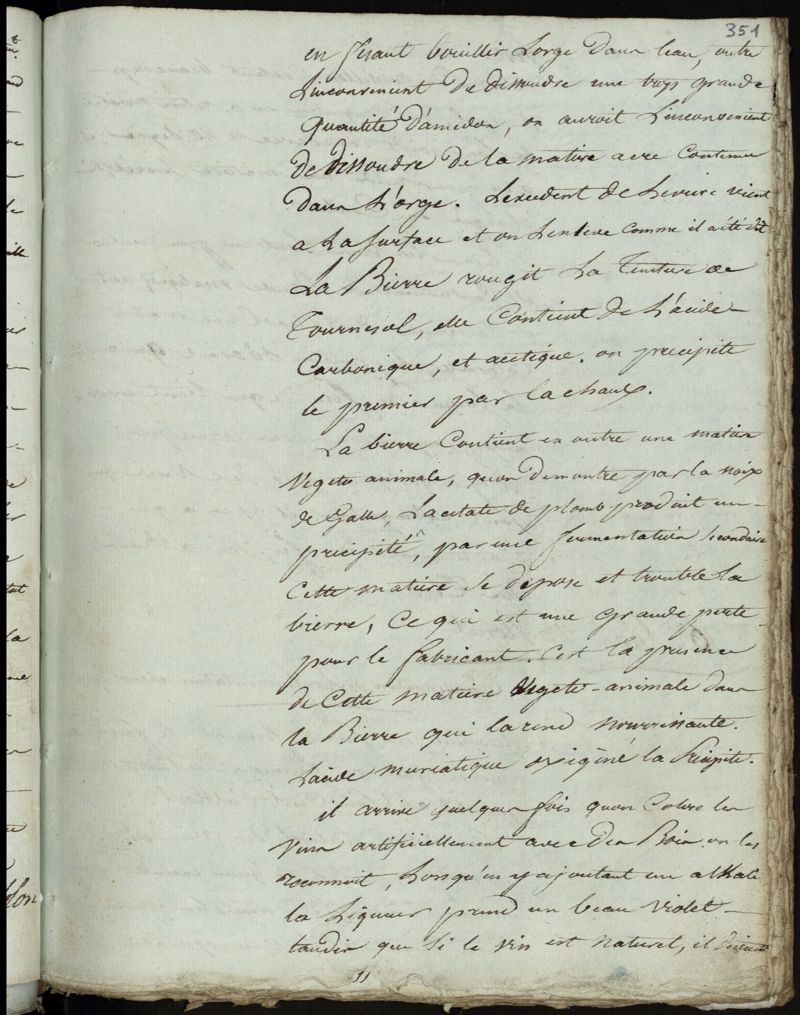 351
en fesant bouillir Lorge Dans leau, outre
Linconvenient De dissoudre une trop grande
Quantité D'amidon, on auroit Linconvenient
De dissoudre De la matiere acre Contenue
Dans L'orge. Lexcedent de Levure vient
a La Surface et on Lenleve comme il a été dit
La Bierre rougit La Teinture de
Tournesol, elle Contient de L'acide
Carbonique, et acetique. on precipite
le premier par la chaux.
La bierre Contient en outre une matiere
Vegeto animale, quon Demontre par la noix
de Galle, Lacetate de plomb produit un
precipité, par une fermentation Secondaire
Cette matiere Se depose et trouble La
bierre, Ce qui est une grande perte
pour le fabricant. C'est la presence
de Cette matiere Vegeto-animale dans
la Bierre qui la rend nourrissante.
Lacide muriatique oxigéné la Précipite.
il arrive quelques fois quon Colore les
Vins artificiellement avec Des Bois, on les
reconnoit, Lorsqu'en y ajoutant un alkali
la Liqueur prend un beau violet
tandis que Si le vin est naturel, il devient